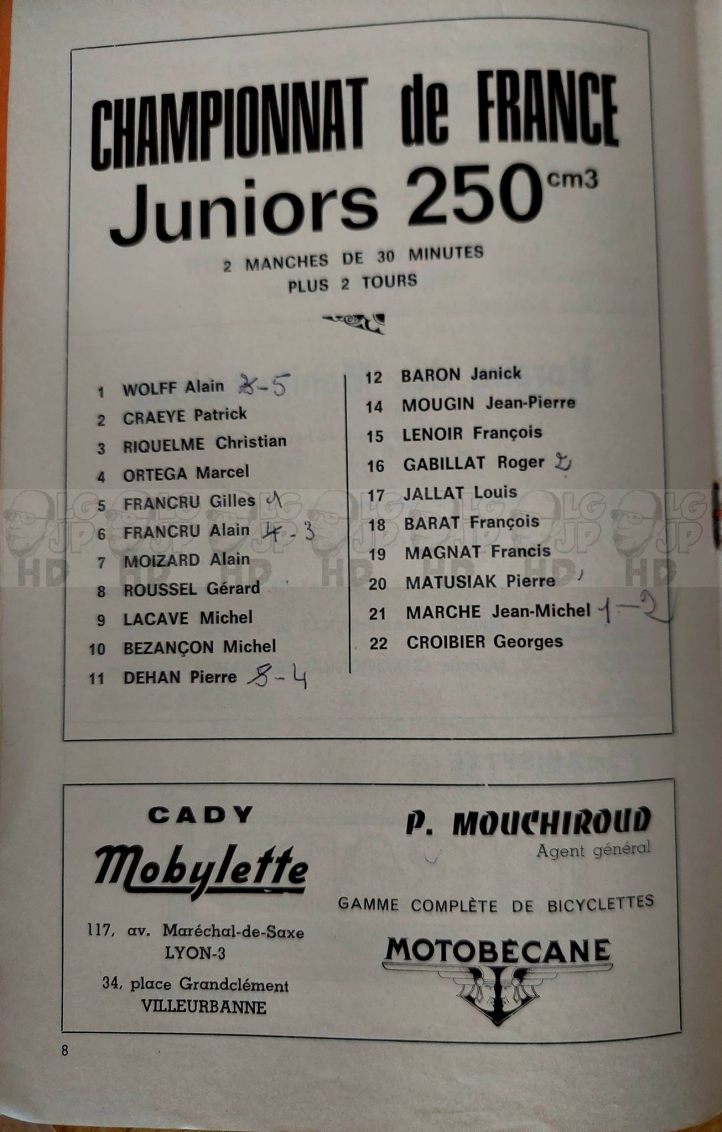 CHAMPIONNAT de FRANCE
Juniors 250 cm3
2 MANCHES DE 30 MINUTES
PLUS 2 TOURS
1 WOLFF Alain
2 CRAEYE Patrick
3 RIQUELME Christian
4 ORTEGA Marcel
5 FRANCRU Gilles 1
6 FRANCRU Alain 4-3
7 MOIZARD Alain
8 ROUSSEL Gérard
9 LACAVE Michel
10 BEZANÇON Michel
11 DEHAN Pierre
12 BARON Janick
14 MOUGIN Jean-Pierre
15 LENOIR François
16 GABILLAT Roger 2
17 JALLAT Louis
18 BARAT François
19 MAGNAT Francis
20 MATUSIAK Pierre
21 MARCHE Jean-Michel 1-2
22 CROIBIER Georges
LGJP HD
CADY
Mobylette
117, av. Maréchal-de-Saxe
LYON-3
34, place Grandclément
VILLEURBANNE
P. MOUCHIROUD
Agent général
GAMME COMPLÈTE DE BICYCLETTES
MOTOBÉCANE
8